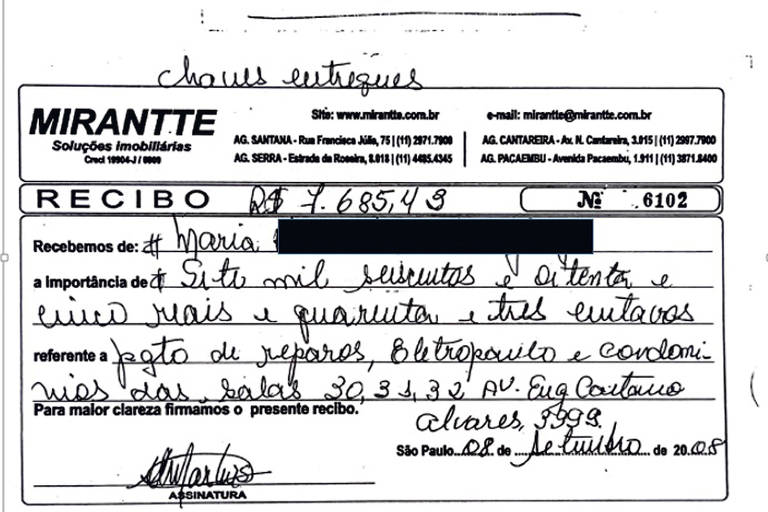 chaves entregues
MIRANTTE
Soluções imobiliárias
Creci 19904-J / 0800
Site: www.mirantte.com.br e-mail: mirantte@mirantte.com.br
AG. SANTANA - Rua Francisca Júlia, 75 | (11) 2971.7900 AG. CANTAREIRA - Av. N. Cantareira, 3.015 | (11) 2997.7900
AG. SERRA - Estrada de Roseira, 8.018 | (11) 4485.4345 AG. PACAEMBU - Avenida Pacaembu, 1.911 | (11) 3871.8400
RECIBO R$ 7.685,43 Nº 6102
Recebemos de: # Maria
a importância de # Sete mil seiscentos e oitenta e
cinco reais e quarenta e tres centavos
referente a pgto de reparos, Eletropaulo e condomi-
nios das salas 30, 31, 32 AV. Eng Caetano
Para maior clareza firmamos o presente recibo. alvares, 3999.
São Paulo 08 de Setembro de 2008
ASSINATURA